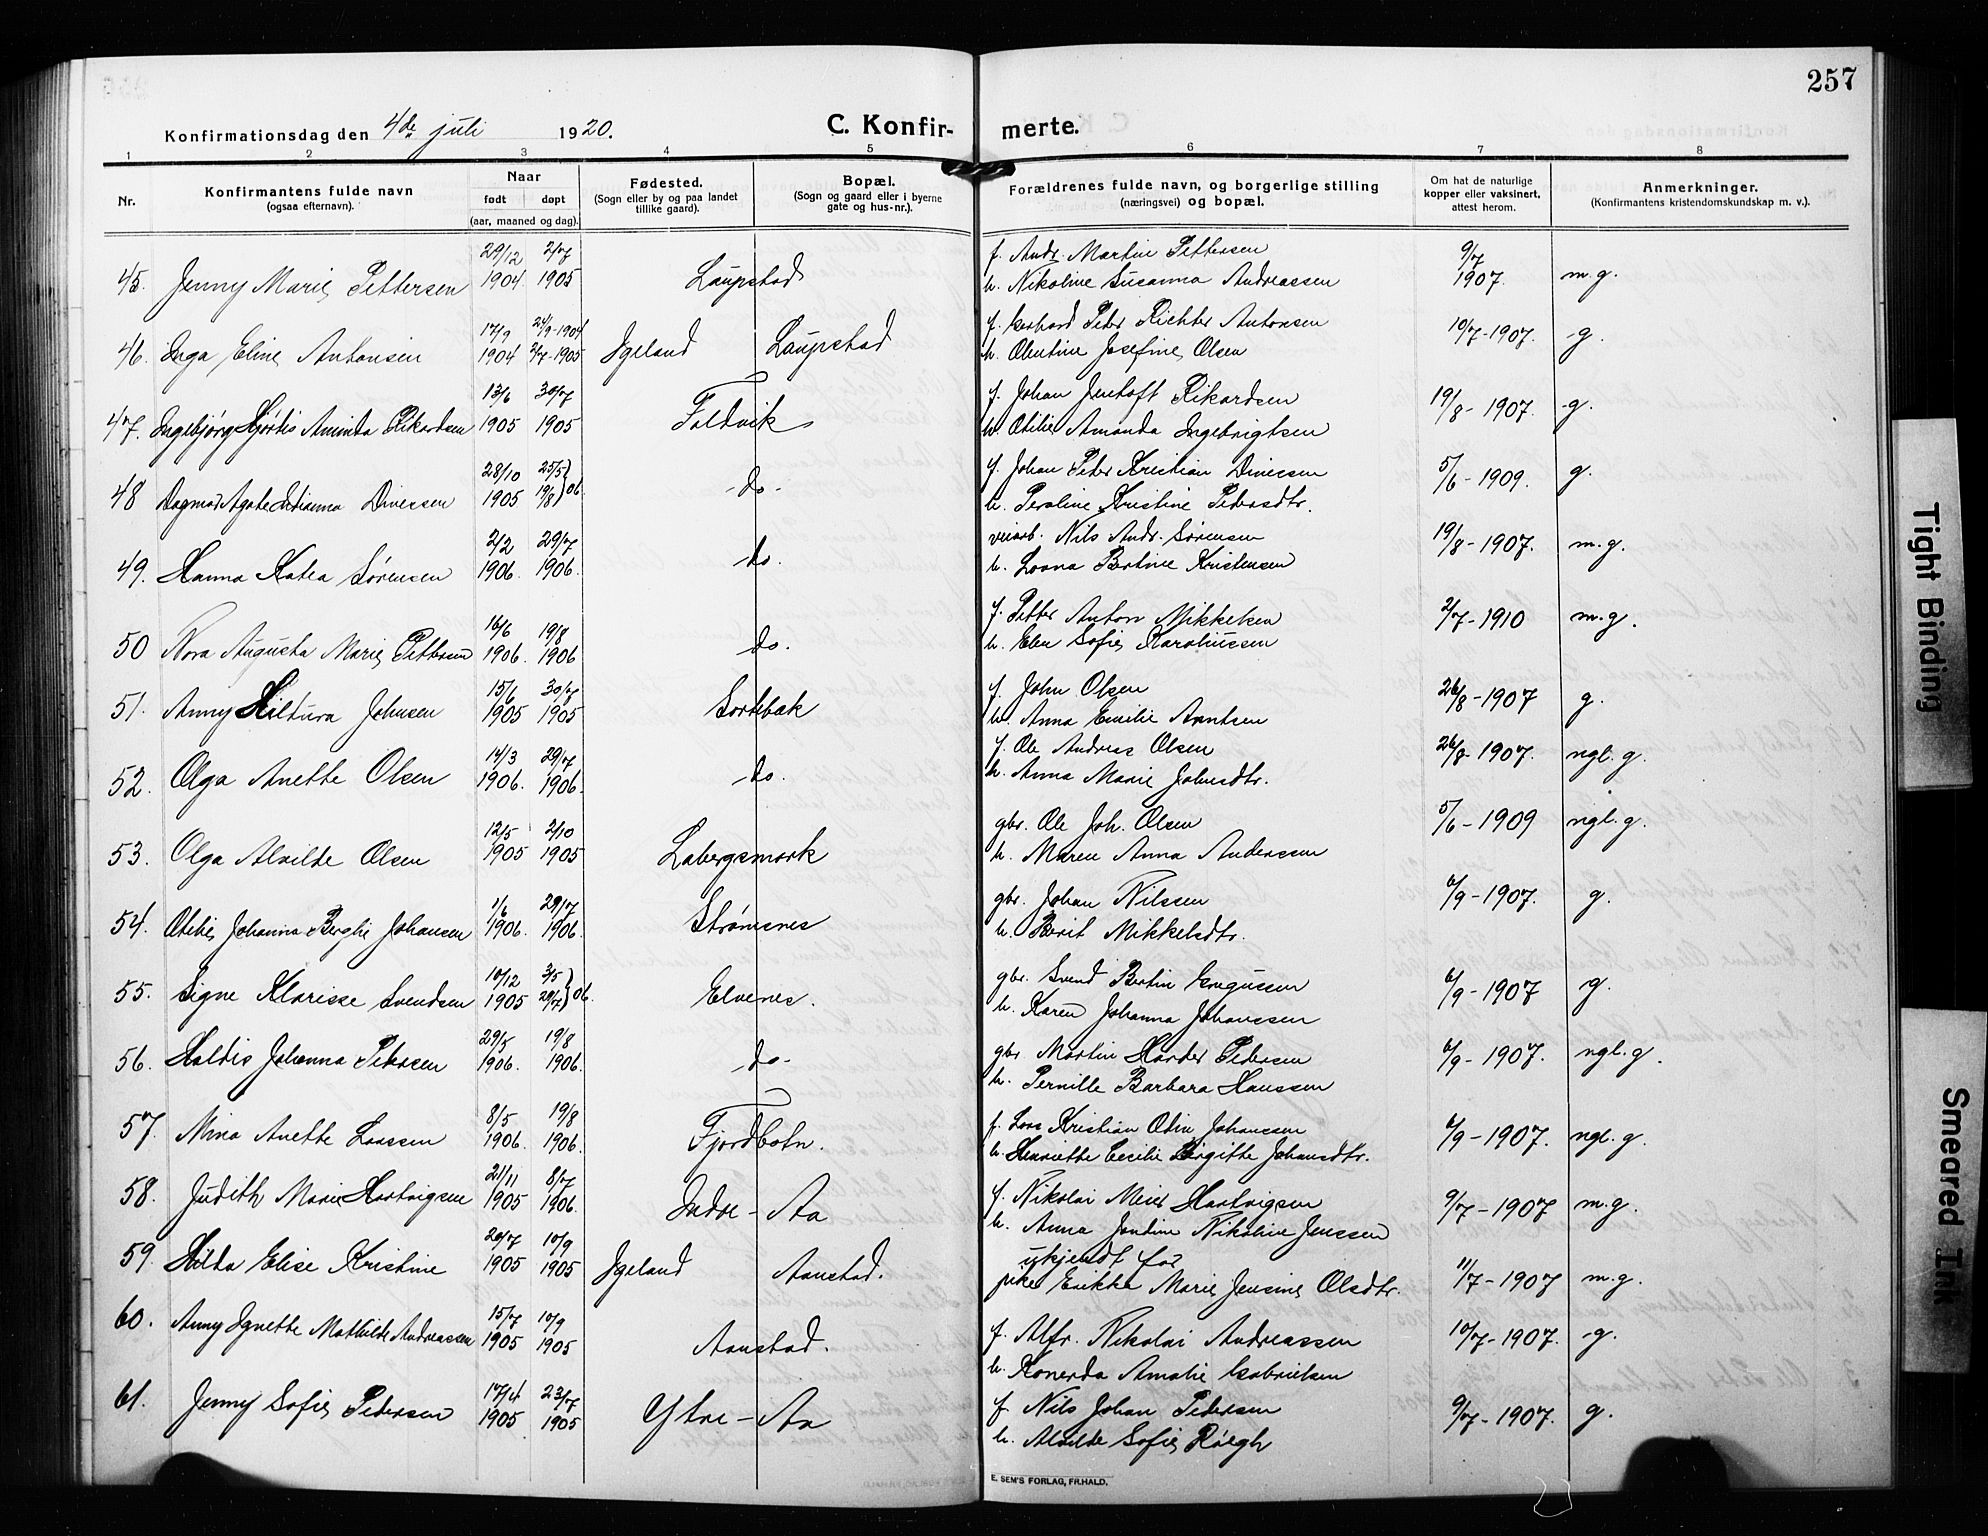 257
Konfirmationsdag den 4de juli 1920.
C. Konfir- merte.
1 2 3 4 5 6 7 8
Nr.
Konfirmantens fulde navn
(ogsaa efternavn).
Naar
født døpt
(aar, maaned og dag).
Fødested.
(Sogn eller by og paa landet
tillike gaard).
Bopæl.
(Sogn og gaard eller i byerne
gate og hus-nr.).
Forældrenes fulde navn, og borgerlige stilling
(næringsvei) og bopæl.
Om hat de naturlige
kopper eller vaksinert,
attest herom.
Anmerkninger.
(Konfirmantens kristendomskundskap m. v.).
29/12 2/7 f. Andr. Martin Pettersen 9/7
45. Jenny Marie Pettersen 1904 1905 Laupstad h. Nikoline Susanna Andreassen 1907. m.g.
17/9 24/9-1904 f. Gerhard Peder Richter Antonsen
46. Inga Eline Antonsen 1904 2/7-1905 Igeland Laupstad h. Olentine Josefine Olsen 10/7-1907. g.
13/6 30/7 f. Johan Jentoft Rikardsen
47. Ingebjørg Hjørdis Aminda Rikardsen 1905 1905 Foldvik h. Otilie Amanda Ingebrigtsen 19/8-1907. g.
28/10 25/5 f. Johan Peder Kristian Divessen
48 Dagmar Agate Divessen 1905 19/8 } 06. -do- h. Peroline Kristine Pedersdtr. 5/6-1909. g.
2/2 29/7 veiarb. Nils Andr. Sørensen
49. Hanna Katea Sørensen 1906. 1906. do. h. Lovna Bertine Kristensen 19/8-1907. m.g.
16/6 19/8 f. Petter Anton Mikkelsen
50 Nora Augusta Marie Pettersen 1906. 1906 do. h. Elen Sofie Karoliussen 2/7-1910 m.g.
15/6 30/7 f. John Olsen
51. Anny Hildura Johnsen 1905 1905 Sortebæk h. Anna Emilie Arntsen 26/8-1907 g.
14/3 29/7 f. Ole Andreas Olsen
52. Olga Anette Olsen 1906. 1906. do. h. Anna Marie Johnsdtr. 26/8-1907. ngl. g.
12/5 2/10 gbr. Ole Joh. Olsen
53. Olga Alvilde Olsen 1905 1905 Labergsmark h. Maren Anna Anderssen 5/6-1909 ngl. g.
1/6 29/7 gbr. Johan Nilssen
54. Otilie Johanna Berghe Johansen 1906. 1906. Strømsnes h. Berit Mikkelsdtr. 6/9-1907. g.
10/12 3/5 gbr. Svend Bertin Gregussen
55. Signe Klarisse Svendsen 1905 29/7 } 06. Elvenes. h. Karen Johanna Johanssen 6/9-1907 g.
29/5 19/8 gbr. Martin Harder Pedersen
56. Haldis Johanna Pedersen 1906. 1906. do- h. Pernille Barbara Hanssen 6/9-1907. ngl. g.
8/5 19/8 f. Lars Kristian Odin Johanssen
57. Mina Anette Larssen 1906. 1906. Fjordbotn. h. Henriette Cecilie Birgitte Johansdtr. 6/9-1907. ngl. g.
21/11 8/7 f. Nikolai Meier Hartvigsen
58. Judith Marie Hartvigsen 1905 1906. Indre-Aa h. Anna Jordine Nikoline Jenssen 9/7-1907 m.g.
20/7 10/9 ukjendt far
59. Hilda Elise Kristine 1905 1905 Igeland Aanstad. pike Erikka Marie Jensine Olsdtr. 11/7-1907 m.g.
15/7 10/9 f. Alfr. Nikolai Andreassen
60. Anny Agnethe Mathilde Andreassen 1905 1905 Aanstad. h. Konerda Amalie Gabrielsen 10/7-1907. g.
17/4 23/7 f. Nils Johan Pedersen
61. Jenny Sofie Pedersen 1905 1905 Ytre-Aa h. Alvilde Sofie 9/7-1907. g.
E. SEM'S FORLAG, FR.HALD.
Tight Binding
Smeared Ink